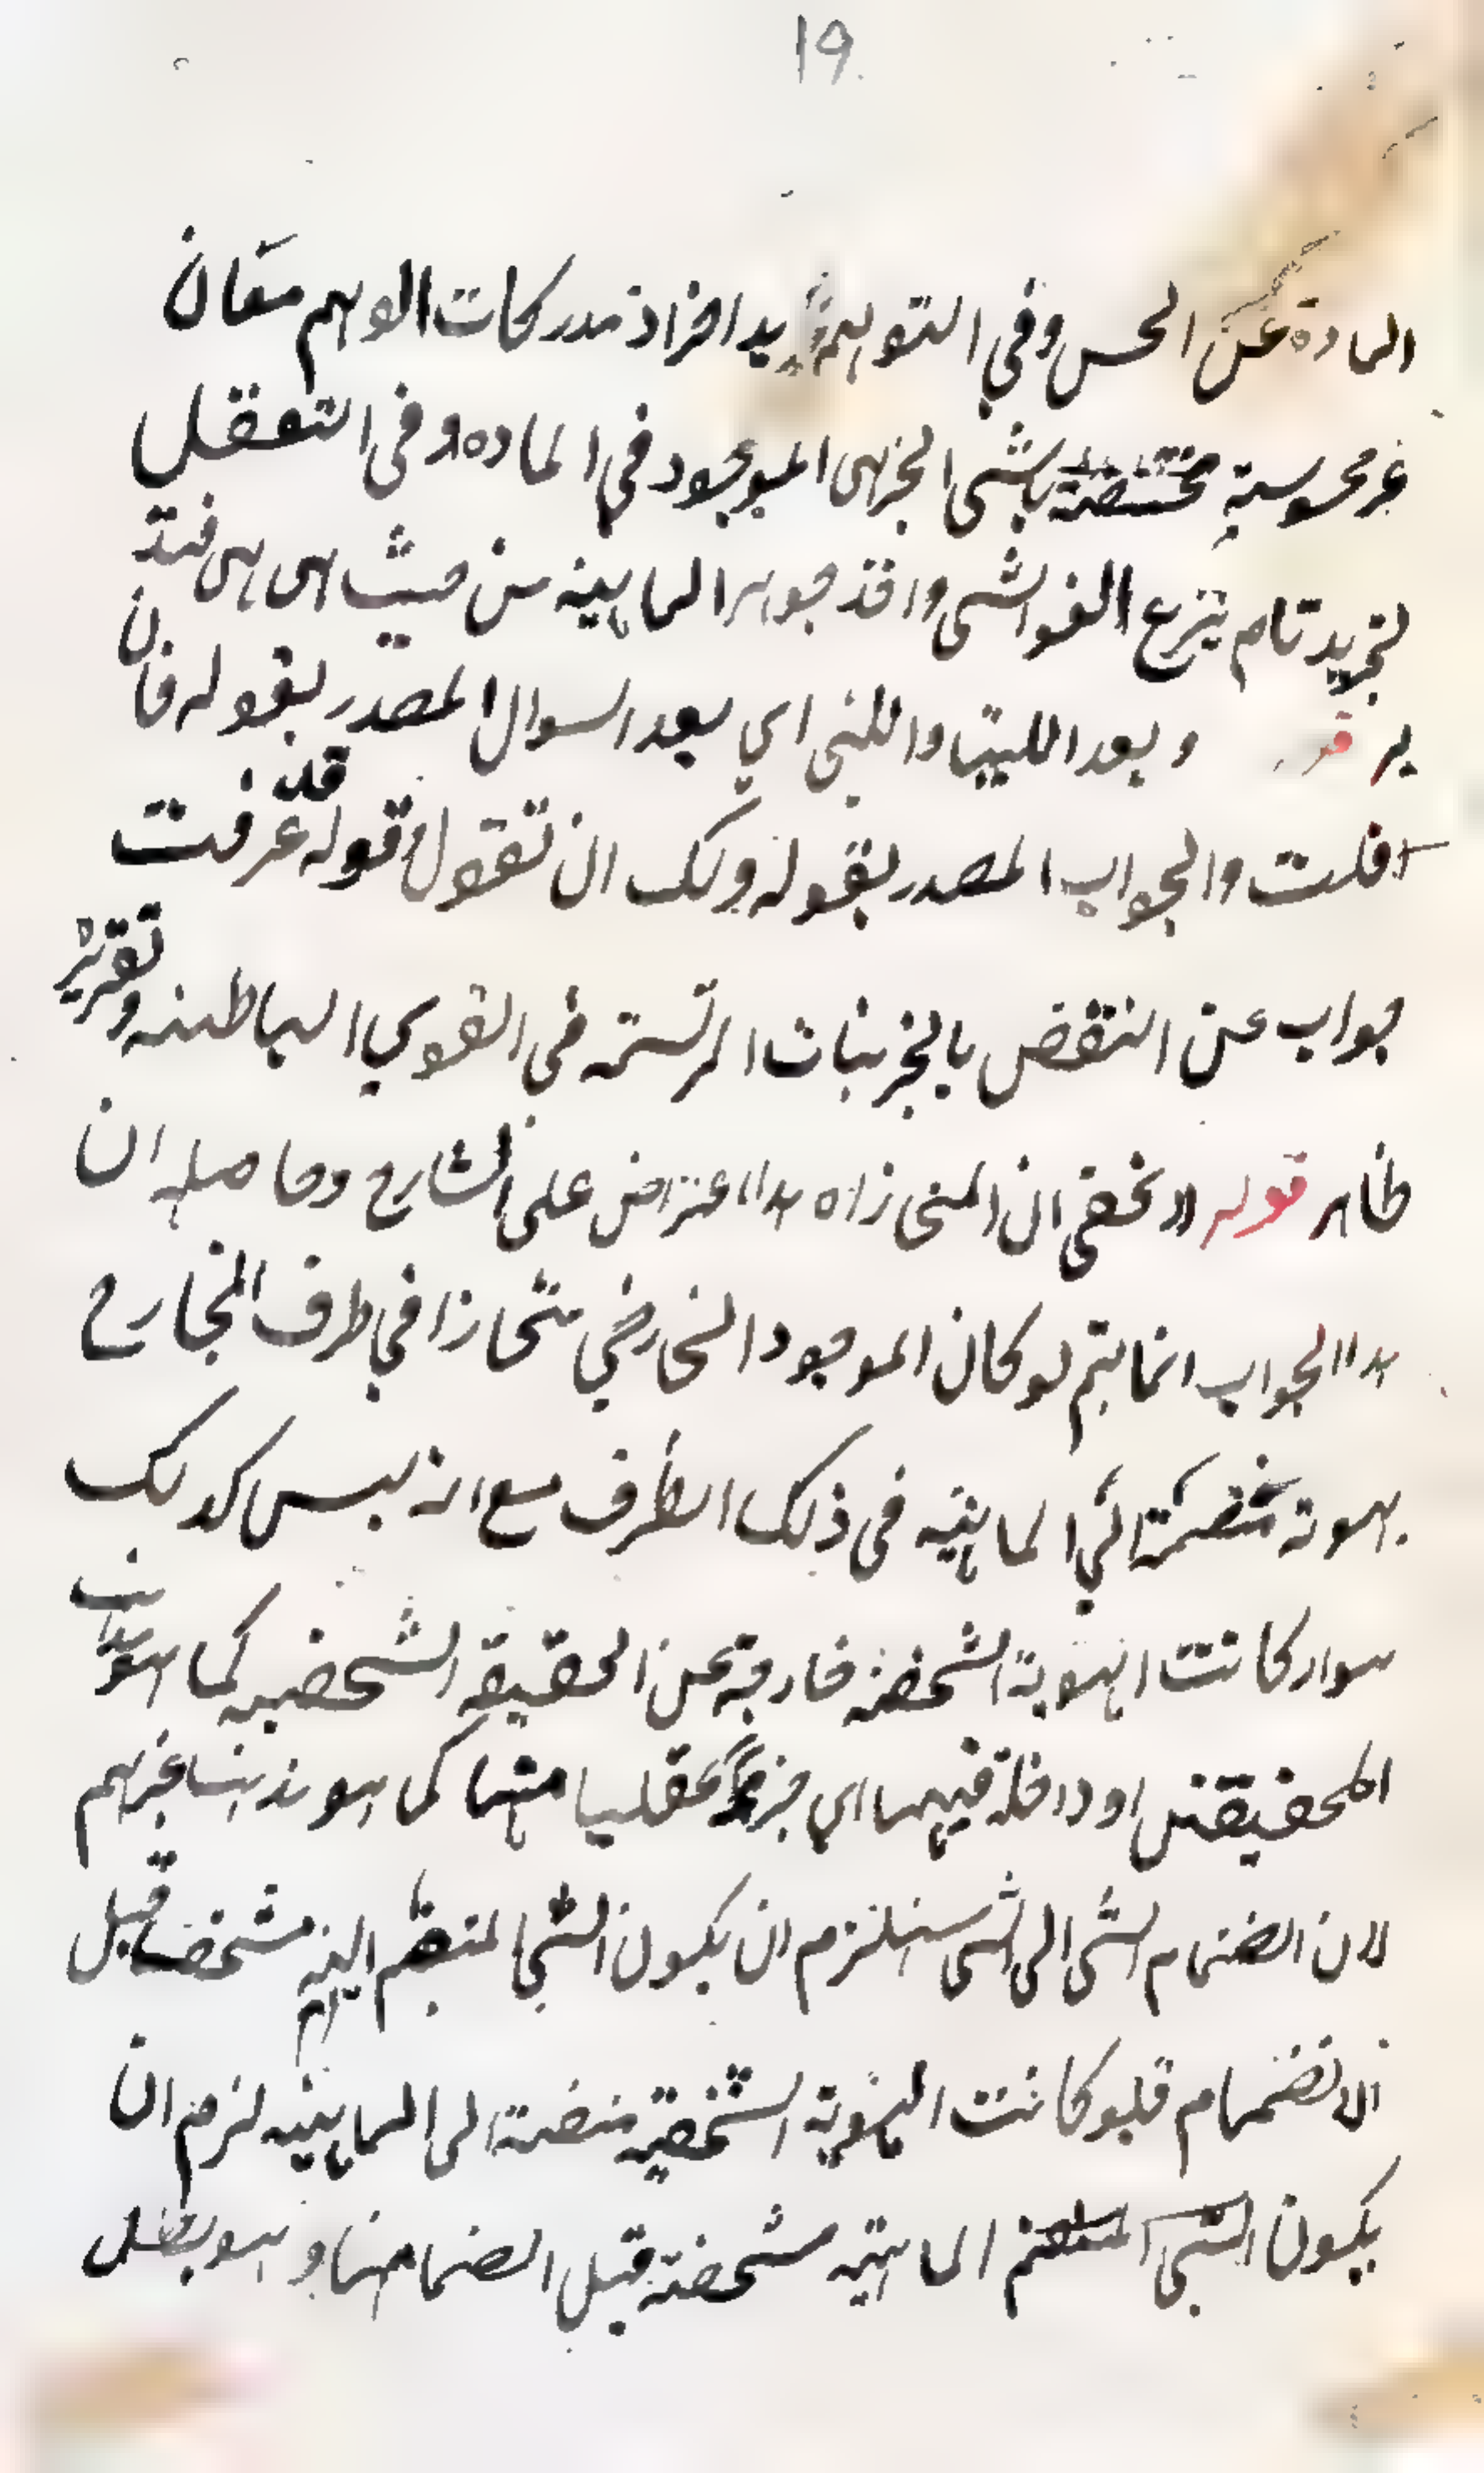 19
المادة عن الحس وفي التوهم يد افراد مدركات الوهم معان
غير محسوسة مختصة بالشى الجزئى الموجود في المادة وفى التعقل
تجريد تام ينزع الغواشى واخذ جوهر الماهية من حيث هى هى فتد
بر قوله وبعد اللتيا واللتى اي بعد السوال المصدر بقوله فان
قلت والجواب المصدر بقوله ولك ان تقول قوله قد عرفت
جواب عن النقض بالجزئيات المرتسمة في القوي الباطنه وتقريره
ظاهر قوله لا يخفى ان المنحازاه هذا اعتراض على الشارح وحاصله ان
هذا الجواب انما يتم لو كان الموجود الخارجي منحازا في ظرف الخارج
بهوية منضمة الي الماهية فى ذلك الظرف مع انه ليس كذلك
سواء كانت الهوية الشخصية خارجة عن الحقيقة الشخصية كما هو مذهب
المحققين او داخلة فيهما اي جزءا عقليا منها كما هو مذهب غيرهم
لان انضمام الشى الى الشى يستلزم ان يكون الشي المنضم اليه متشخصا قبل
الانضمام فلو كانت الهوية الشخصية منضمة الى الماهية لزم ان
يكون الشى المنضم الماهية متشخصة قبل انضمامها وهو بطل